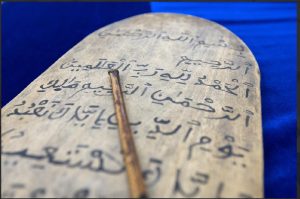 بسم الله الرحمن
الرحيم
الحمد لله رب العالمين
الرحمن الرحيم ملك
يوم الدين إياك نعبد
وإياك نستعين